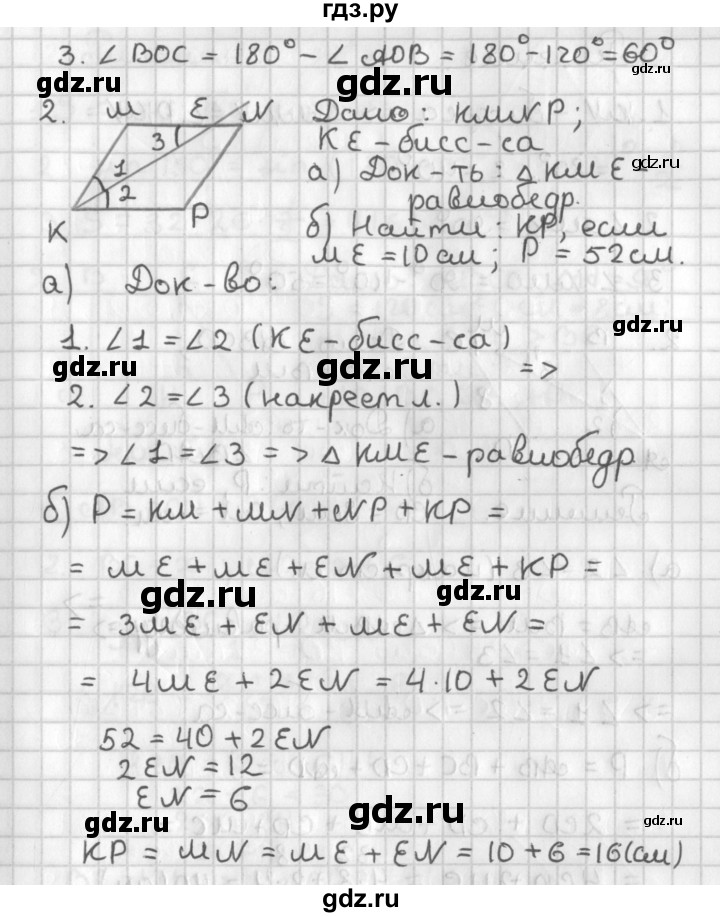 гдз.ру
3. ∠ BOC = 180° - ∠ AOB = 180° - 120° = 60°
gdz.ru gdz.ru
2. M E N Дано: KMNP;
3 KE - бисс-са
1 а) Док-ть: Δ KME -
2 равнобедр.
K P б) Найти: KP, если
ME = 10 см; P = 52 см.
а) Док-во:
1. ∠1 = ∠2 (KE - бисс-са)
gdz.ru
gdz.ru gdz.ru =>
2. ∠2 = ∠3 (накрест л.)
=> ∠1 = ∠3 => Δ KME - равнобедр
gdz.ru gdz.ru
б) P = KM + MN + NP + KP =
= ME + ME + EN + ME + KP =
gdz.ru gdz.ru
= 3ME + EN + ME + EN =
= 4ME + 2EN = 4·10 + 2EN
52 = 40 + 2EN
2EN = 12
EN = 6
gdz.ru gdz.ru gdz.ru
KP = MN = ME + EN = 10 + 6 = 16(см)
gdz.ru